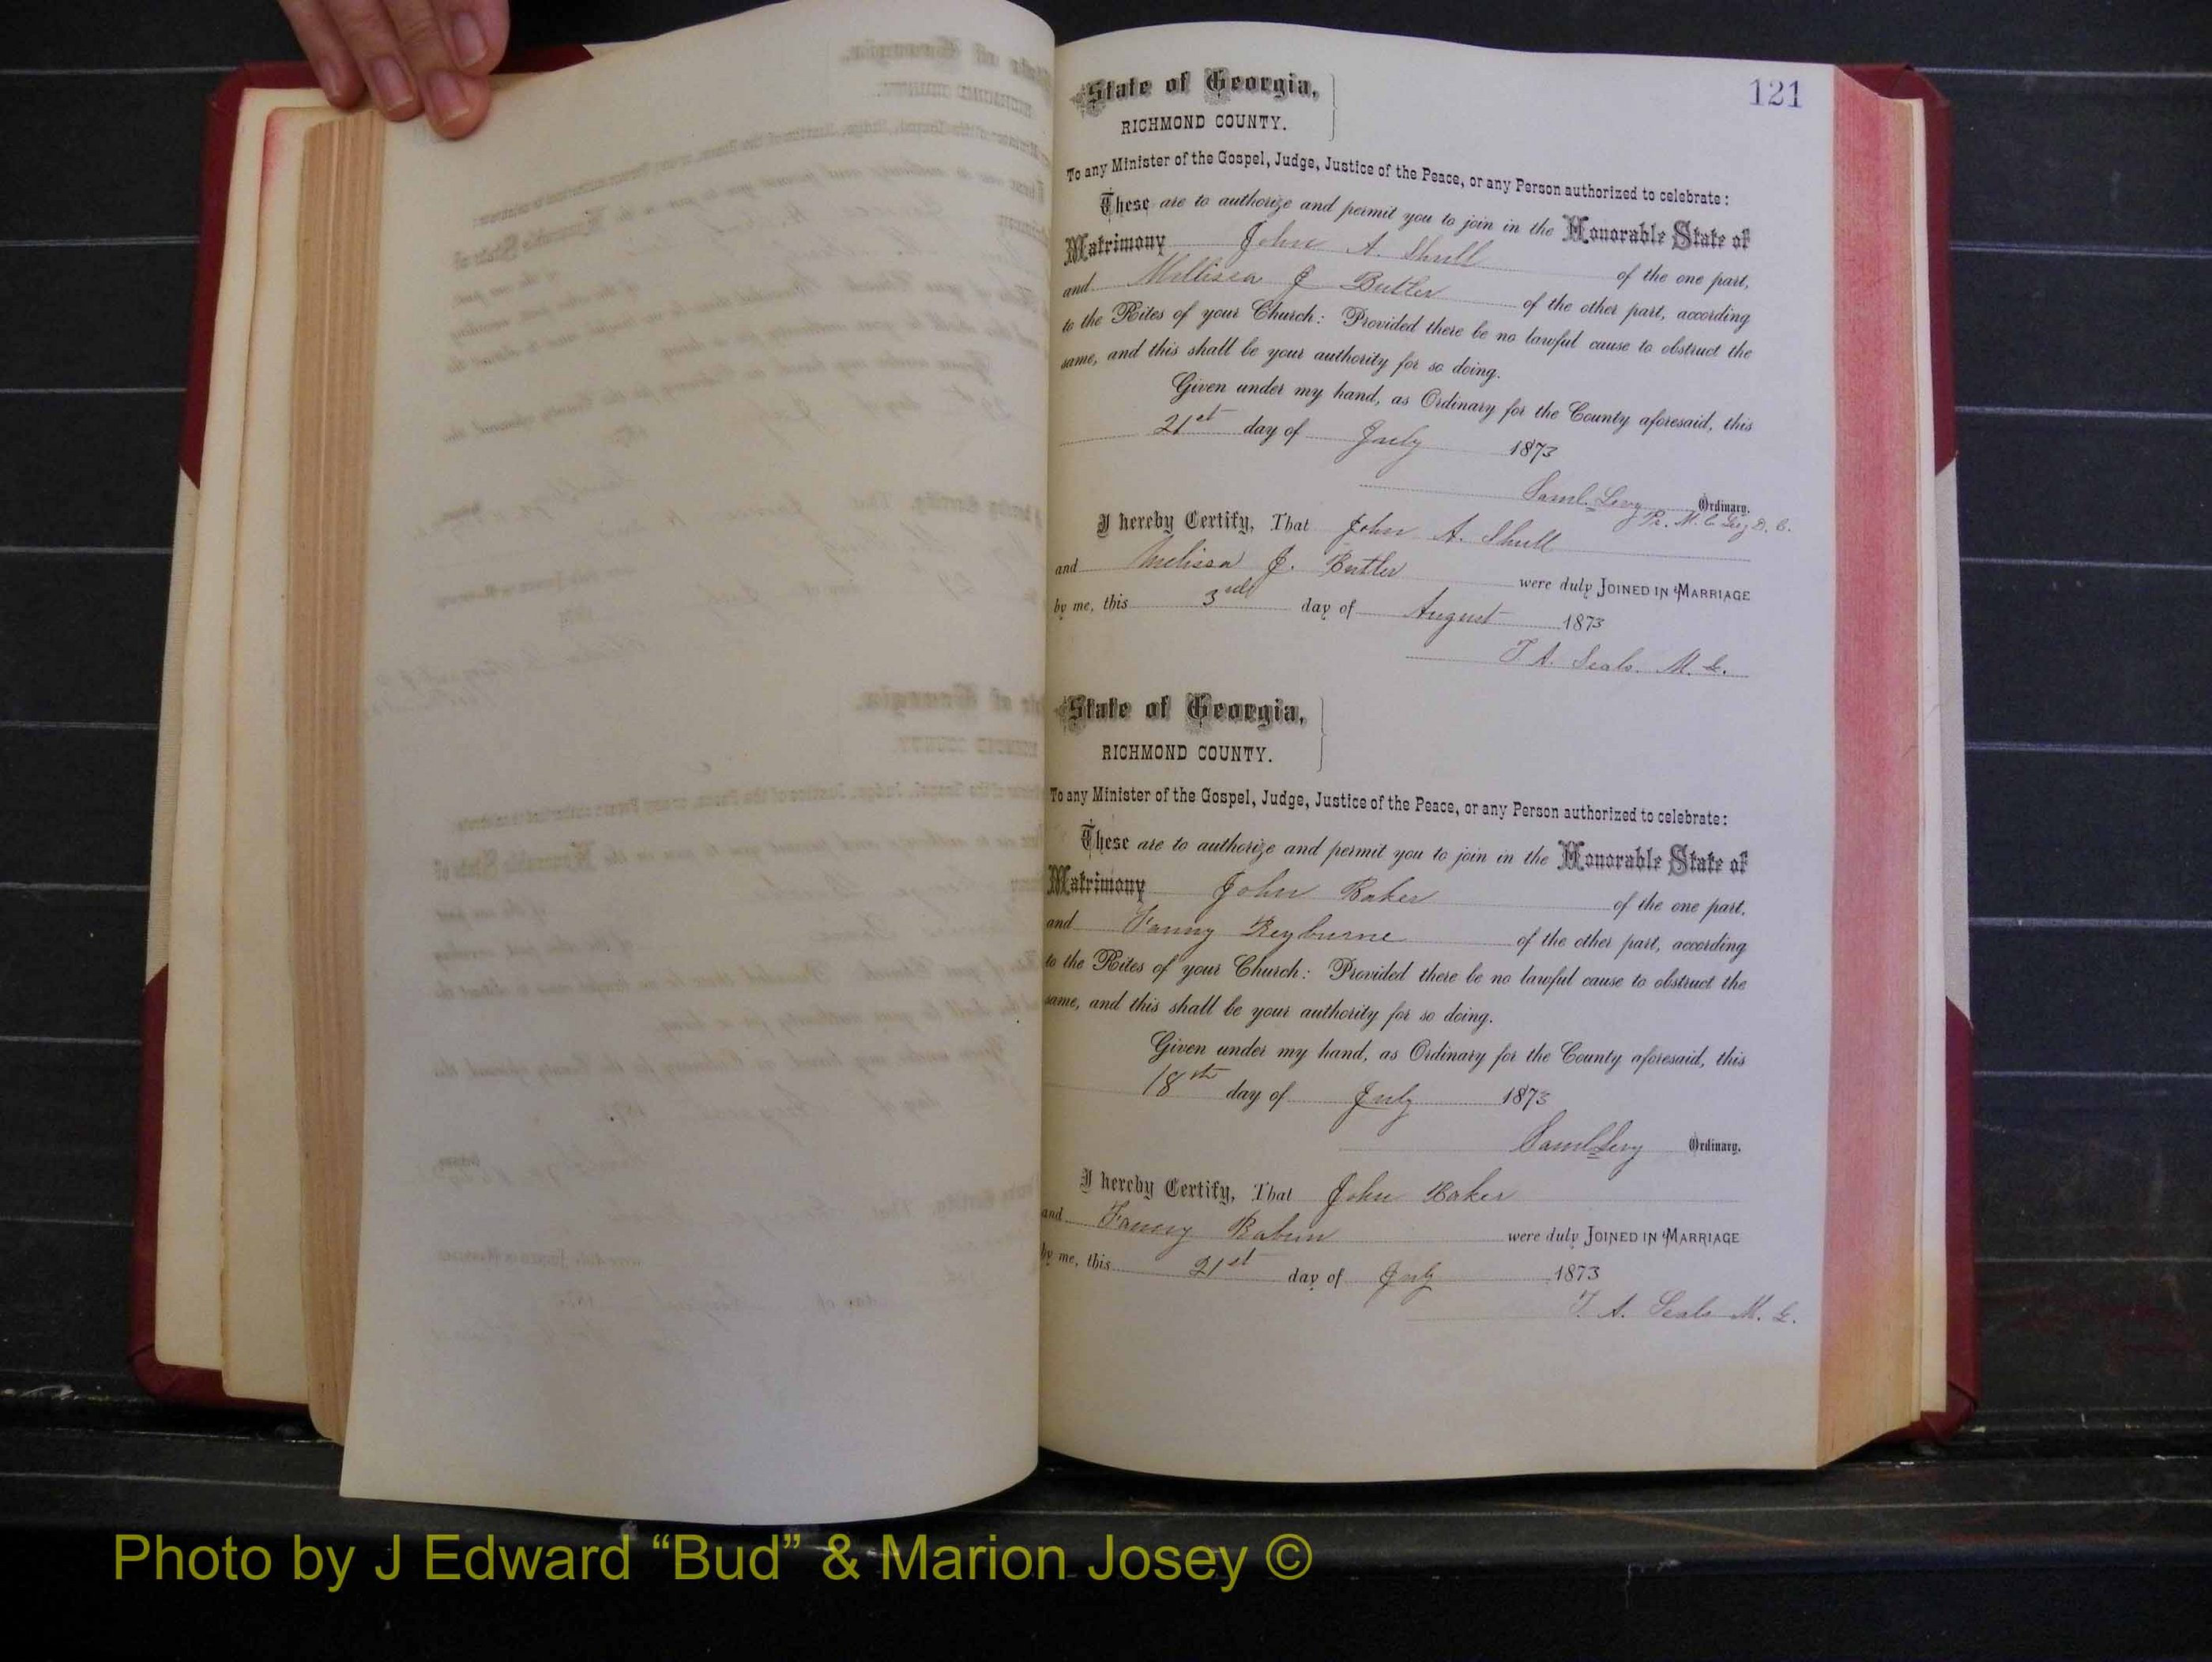 121
State of Georgia,
RICHMOND COUNTY.
To any Minister of the Gospel, Judge, Justice of the Peace, or any Person authorized to celebrate:
These are to authorize and permit you to join in the Honorable State of
Matrimony John A. Shull of the one part,
and Mellissa J Butler of the other part, according
to the Rites of your Church: Provided there be no lawful cause to obstruct the
same, and this shall be your authority for so doing.
Given under my hand, as Ordinary for the County aforesaid, this
21st day of July 1873
Saml. Levy Ordinary.
Pr. M. C. Levy D. C.
I hereby Certify, That John A. Shull
and Melissa J. Butler were duly JOINED IN MARRIAGE
by me, this 3rd day of August 1873
T. A. Seals. M. G.
State of Georgia,
RICHMOND COUNTY.
To any Minister of the Gospel, Judge, Justice of the Peace, or any Person authorized to celebrate:
These are to authorize and permit you to join in the Honorable State of
Matrimony John Baker of the one part,
and Fanny Reyburne of the other part, according
to the Rites of your Church: Provided there be no lawful cause to obstruct the
same, and this shall be your authority for so doing.
Given under my hand, as Ordinary for the County aforesaid, this
18th day of July 1873
Saml Levy Ordinary.
I hereby Certify, That John Baker
and Fanny Rabun were duly JOINED IN MARRIAGE
by me, this 21st day of July 1873
T. A. Seals M. G.
Photo by J Edward “Bud” & Marion Josey ©